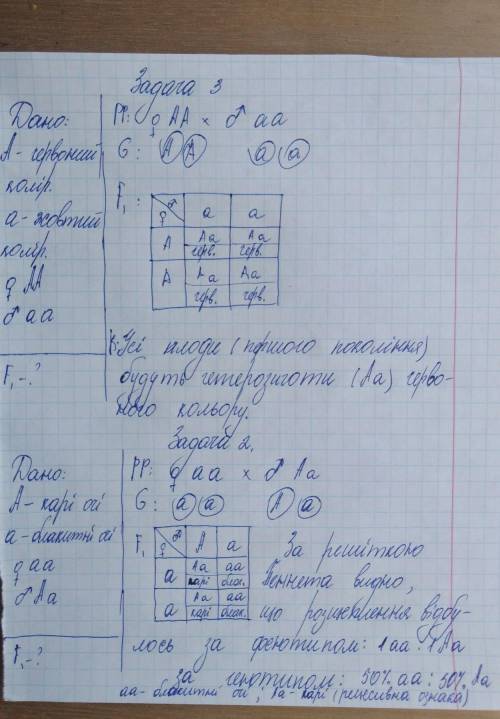 Задача 3
Дано:
А - червоний
колір.
а - жовтий
колір.
♀ АА
♂ аа
F₁ - ?
PP: ♀ АА × ♂ аа
G: А А а а
F₁:
♀ ♂ а а
А Аа Аа
черв. черв.
А Аа Аа
черв. черв.
Усі плоди (першого покоління)
будуть гетерозиготи (Аа) черво-
ного кольору.
Задача 2.
Дано:
А - карі очі
а - блакитні очі
♀ аа
♂ Аа
F₁ - ?
PP: ♀ аа × ♂ Аа
G: а а А а
F₁
♀ ♂ А а
а Аа аа
карі блак.
а Аа аа
карі блак.
За решіткою
Пеннета видно,
що розщеплення відбу-
лось за фенотипом: 1аа : 1Аа
за генотипом: 50% аа : 50% Аа
аа - блакитні очі ; Аа - карі (рецесивна ознака)